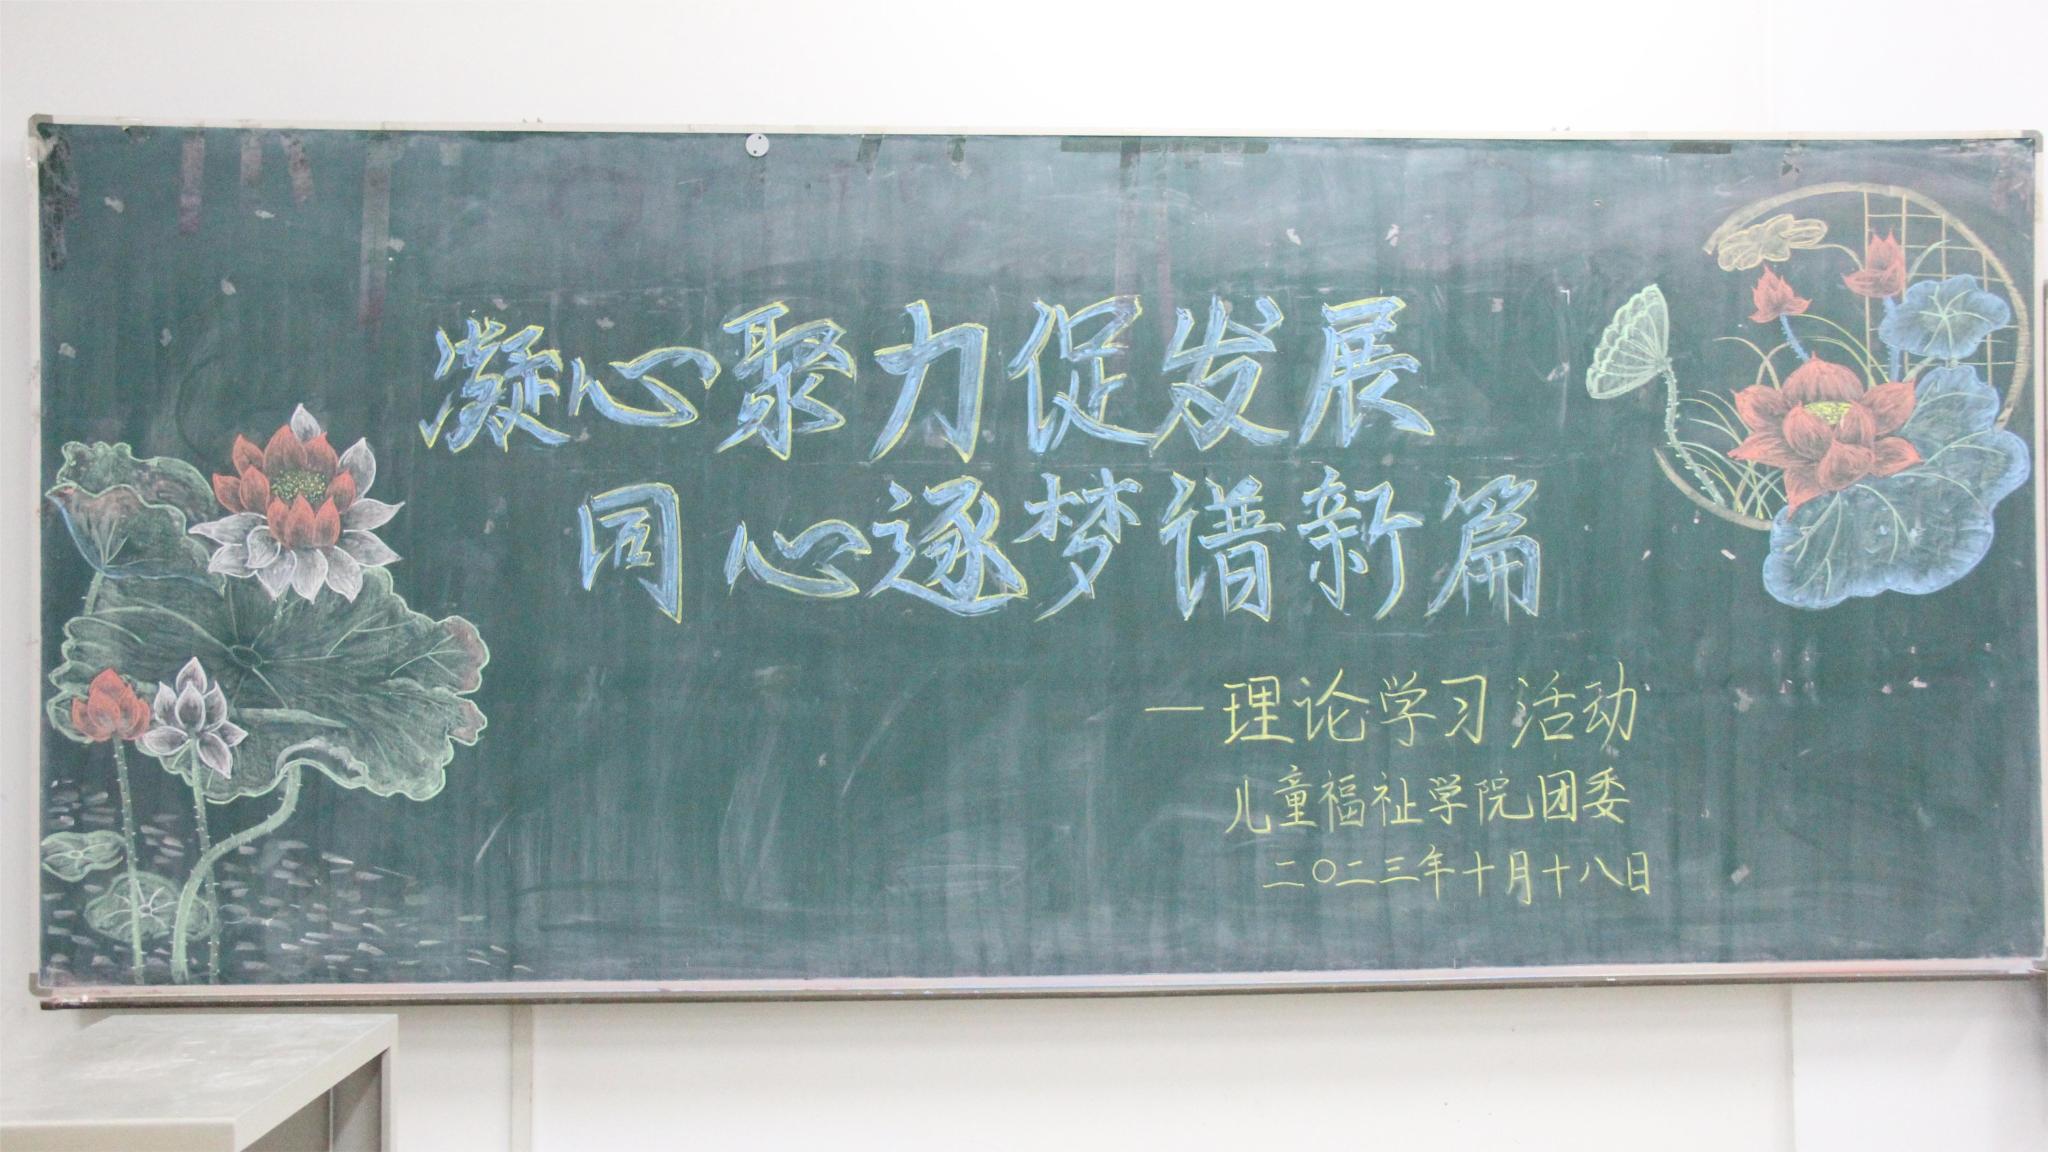 凝心聚力促发展
同心逐梦谱新篇
—理论学习活动
儿童福祉学院团委
二〇二三年十月十八日